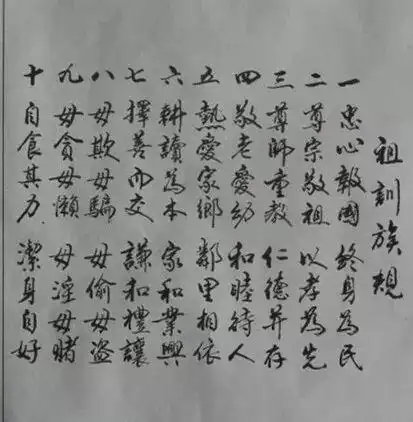 祖訓族規
一 忠心報國 終身為民
二 尊宗敬祖 以孝為先
三 尊師重教 仁德并存
四 敬老愛幼 和睦待人
五 熱愛家鄉 鄰里相依
六 耕讀為本 家和業興
七 擇善而交 謙和禮讓
八 毋欺毋騙 毋偷毋盗
九 毋貪毋懶 毋淫毋賭
十 自食其力 潔身自好